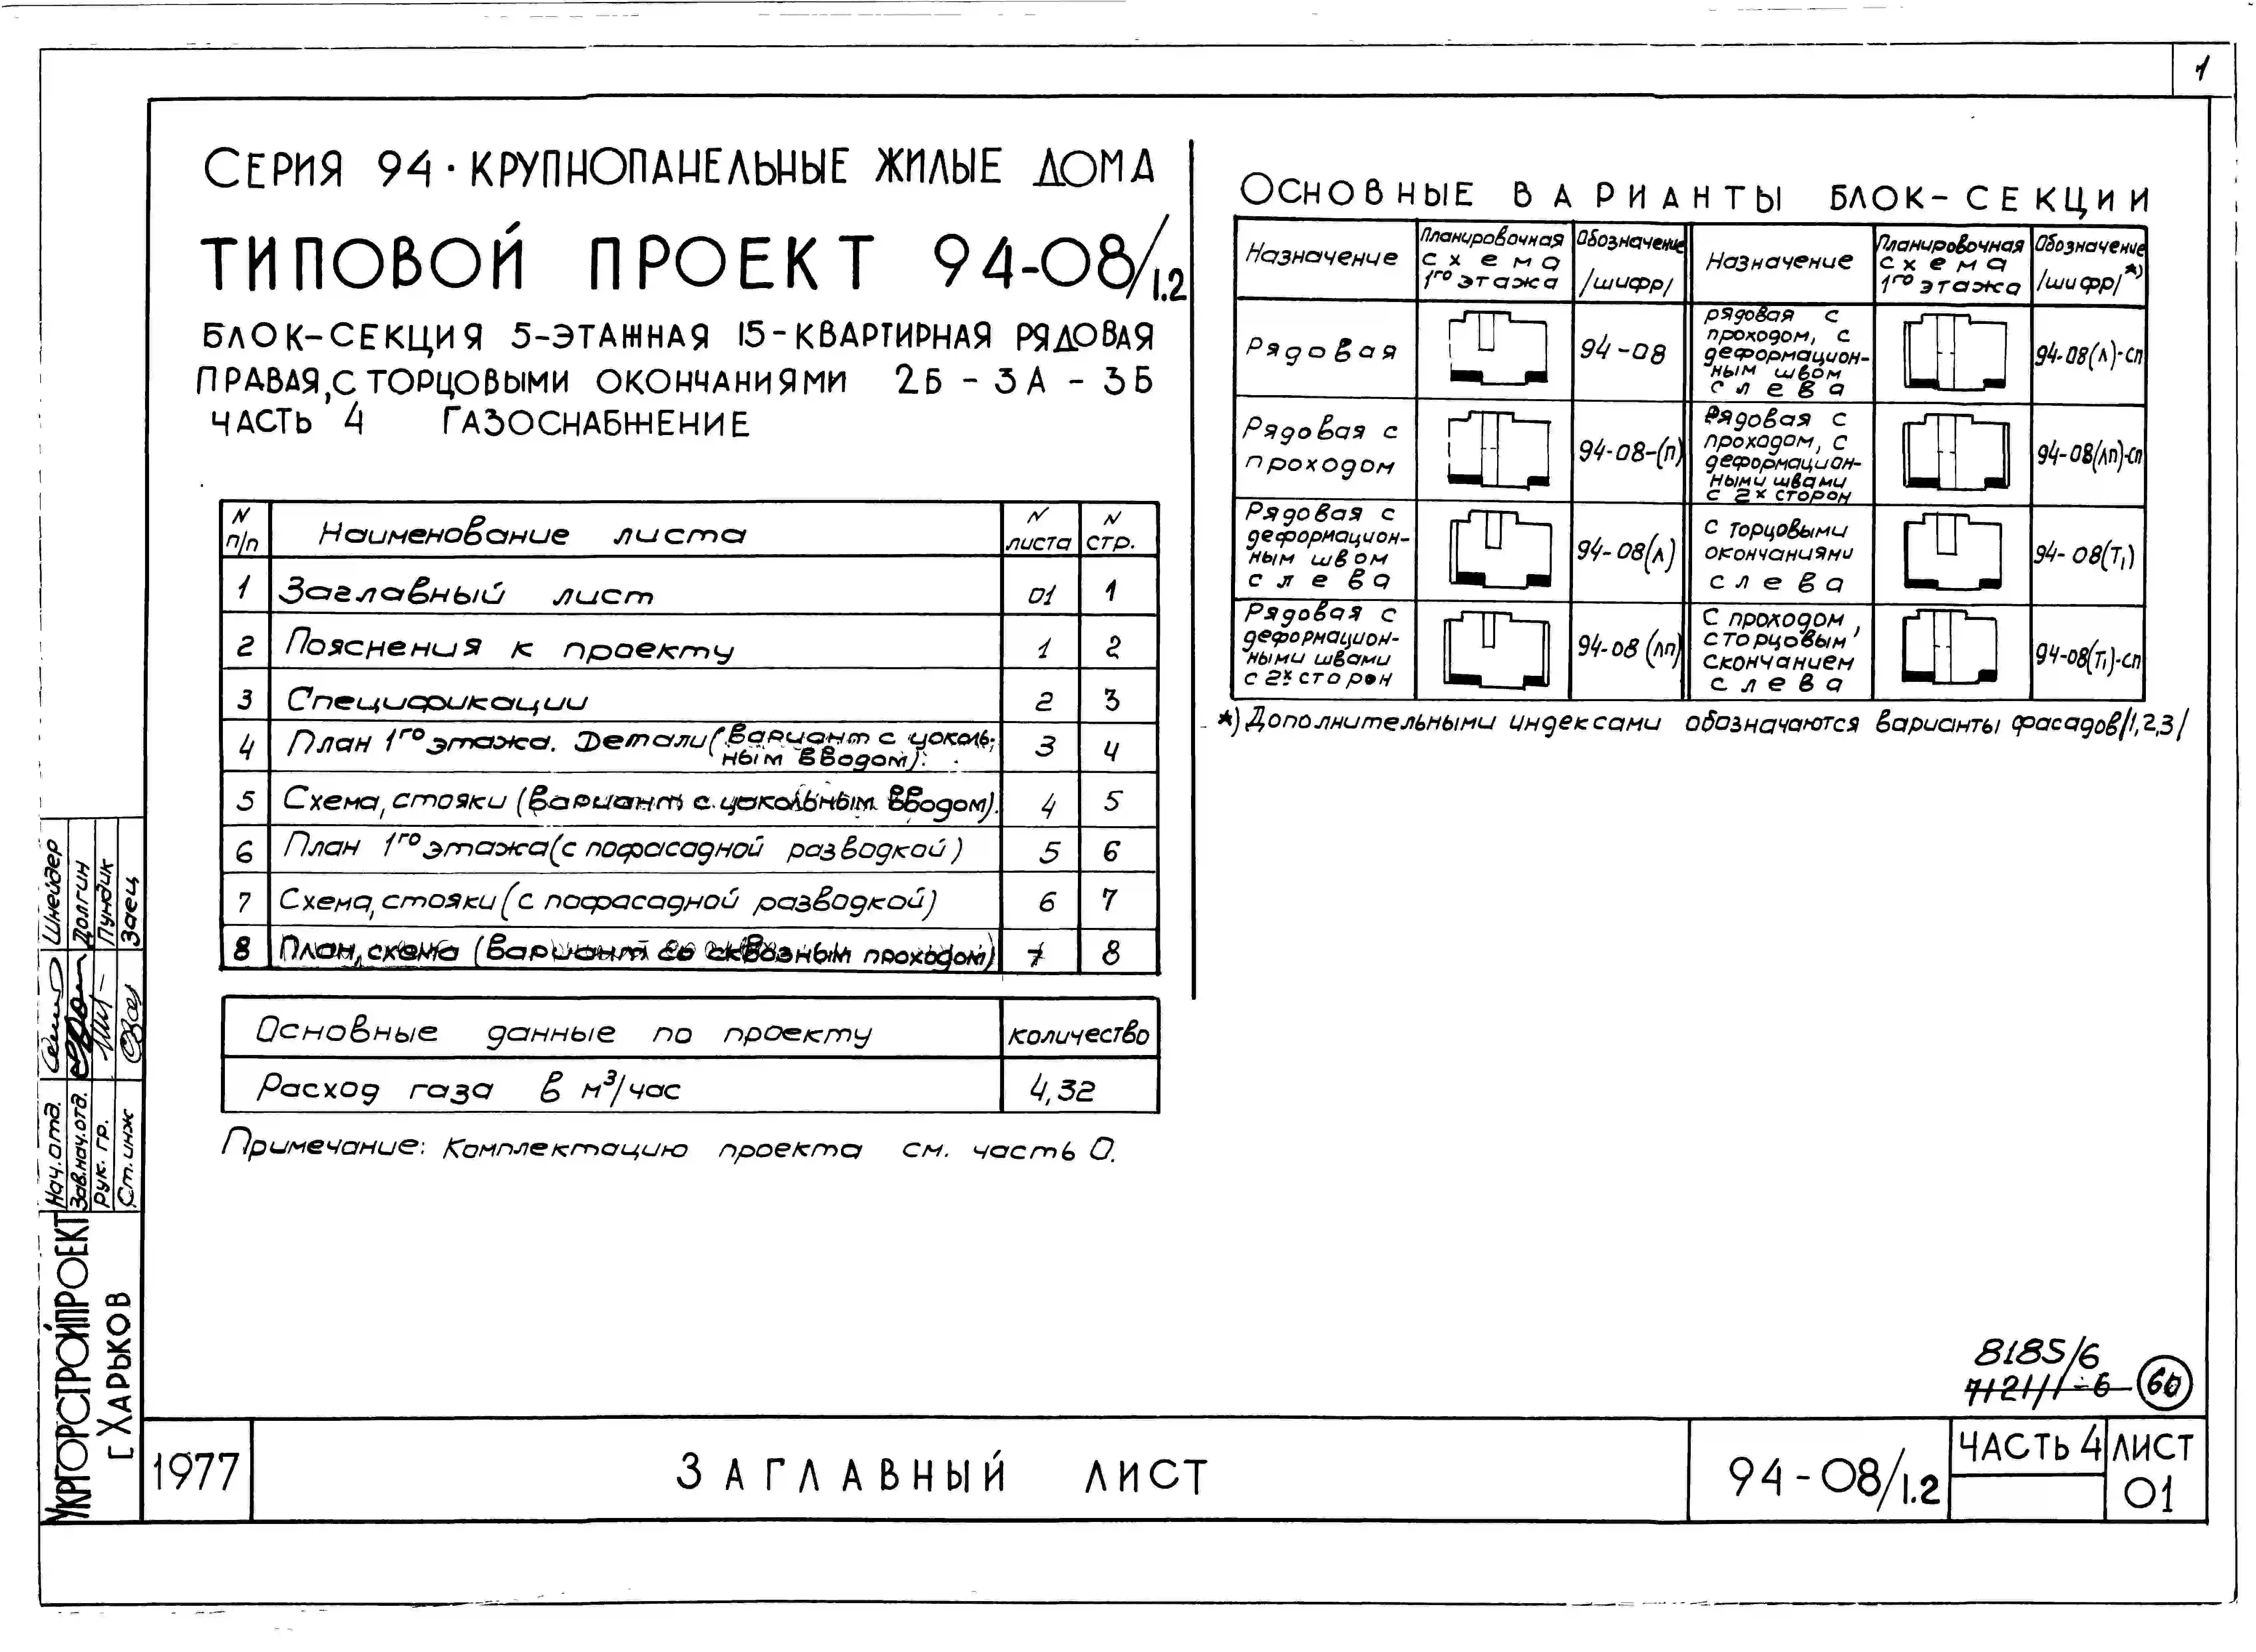 1
СЕРИЯ 94 · КРУПНОПАНЕЛЬНЫЕ ЖИЛЫЕ ДОМА
ТИПОВОЙ ПРОЕКТ 94-08/1.2
БЛОК-СЕКЦИЯ 5-ЭТАЖНАЯ 15-КВАРТИРНАЯ РЯДОВАЯ
ПРАВАЯ, С ТОРЦОВЫМИ ОКОНЧАНИЯМИ 2Б - 3А - 3Б
ЧАСТЬ 4 ГАЗОСНАБЖЕНИЕ
N п/п Наименование листа N листа N стр.
1 Заглавный лист 01 1
2 Пояснения к проекту 1 2
3 Спецификации 2 3
4 План 1го этажа. Детали (вариант с цоколь-
ным вводом). 3 4
5 Схема, стояки (вариант с цокольным вводом). 4 5
6 План 1го этажа (с пофасадной разводкой) 5 6
7 Схема, стояки (с пофасадной разводкой) 6 7
8 План, схема (вариант со сквозным проходом) 7 8
Основные данные по проекту количество
Расход газа в м³/час 4,32
Примечание: Комплектацию проекта см. часть 0.
ОСНОВНЫЕ ВАРИАНТЫ БЛОК-СЕКЦИИ
Назначение
Планировочная
схема
1го этажа
Обозначение
/шифр/
Назначение
Планировочная
схема
1го этажа
Обозначение
/шифр/ *)
Рядовая
94-08
рядовая с
проходом, с
деформацион-
ным швом
слева
94-08(л)-сп
Рядовая с
проходом
94-08-(п)
Рядовая с
проходом, с
деформацион-
ными швами
с 2х сторон
94-08(лп)-сп
Рядовая с
деформацион-
ным швом
слева
94-08(л)
с торцовыми
окончаниями
слева
94-08(Т₁)
Рядовая с
деформацион-
ными швами
с 2х сторон
94-08 (лп)
С проходом,
с торцовым
скончанием
слева
94-08(Т₁)-сп
*) Дополнительными индексами обозначаются варианты фасадов /1,2,3/
Шнейдер
Долгин
Пундик
Заец
Нач.отд.
Зав.нач.отд.
Рук. гр.
Ст.инж
УКРГОРСТРОЙПРОЕКТ
Г ХАРЬКОВ
8185/6
7121/1-6 60
1977 ЗАГЛАВНЫЙ ЛИСТ 94-08/1.2 ЧАСТЬ 4 ЛИСТ
01